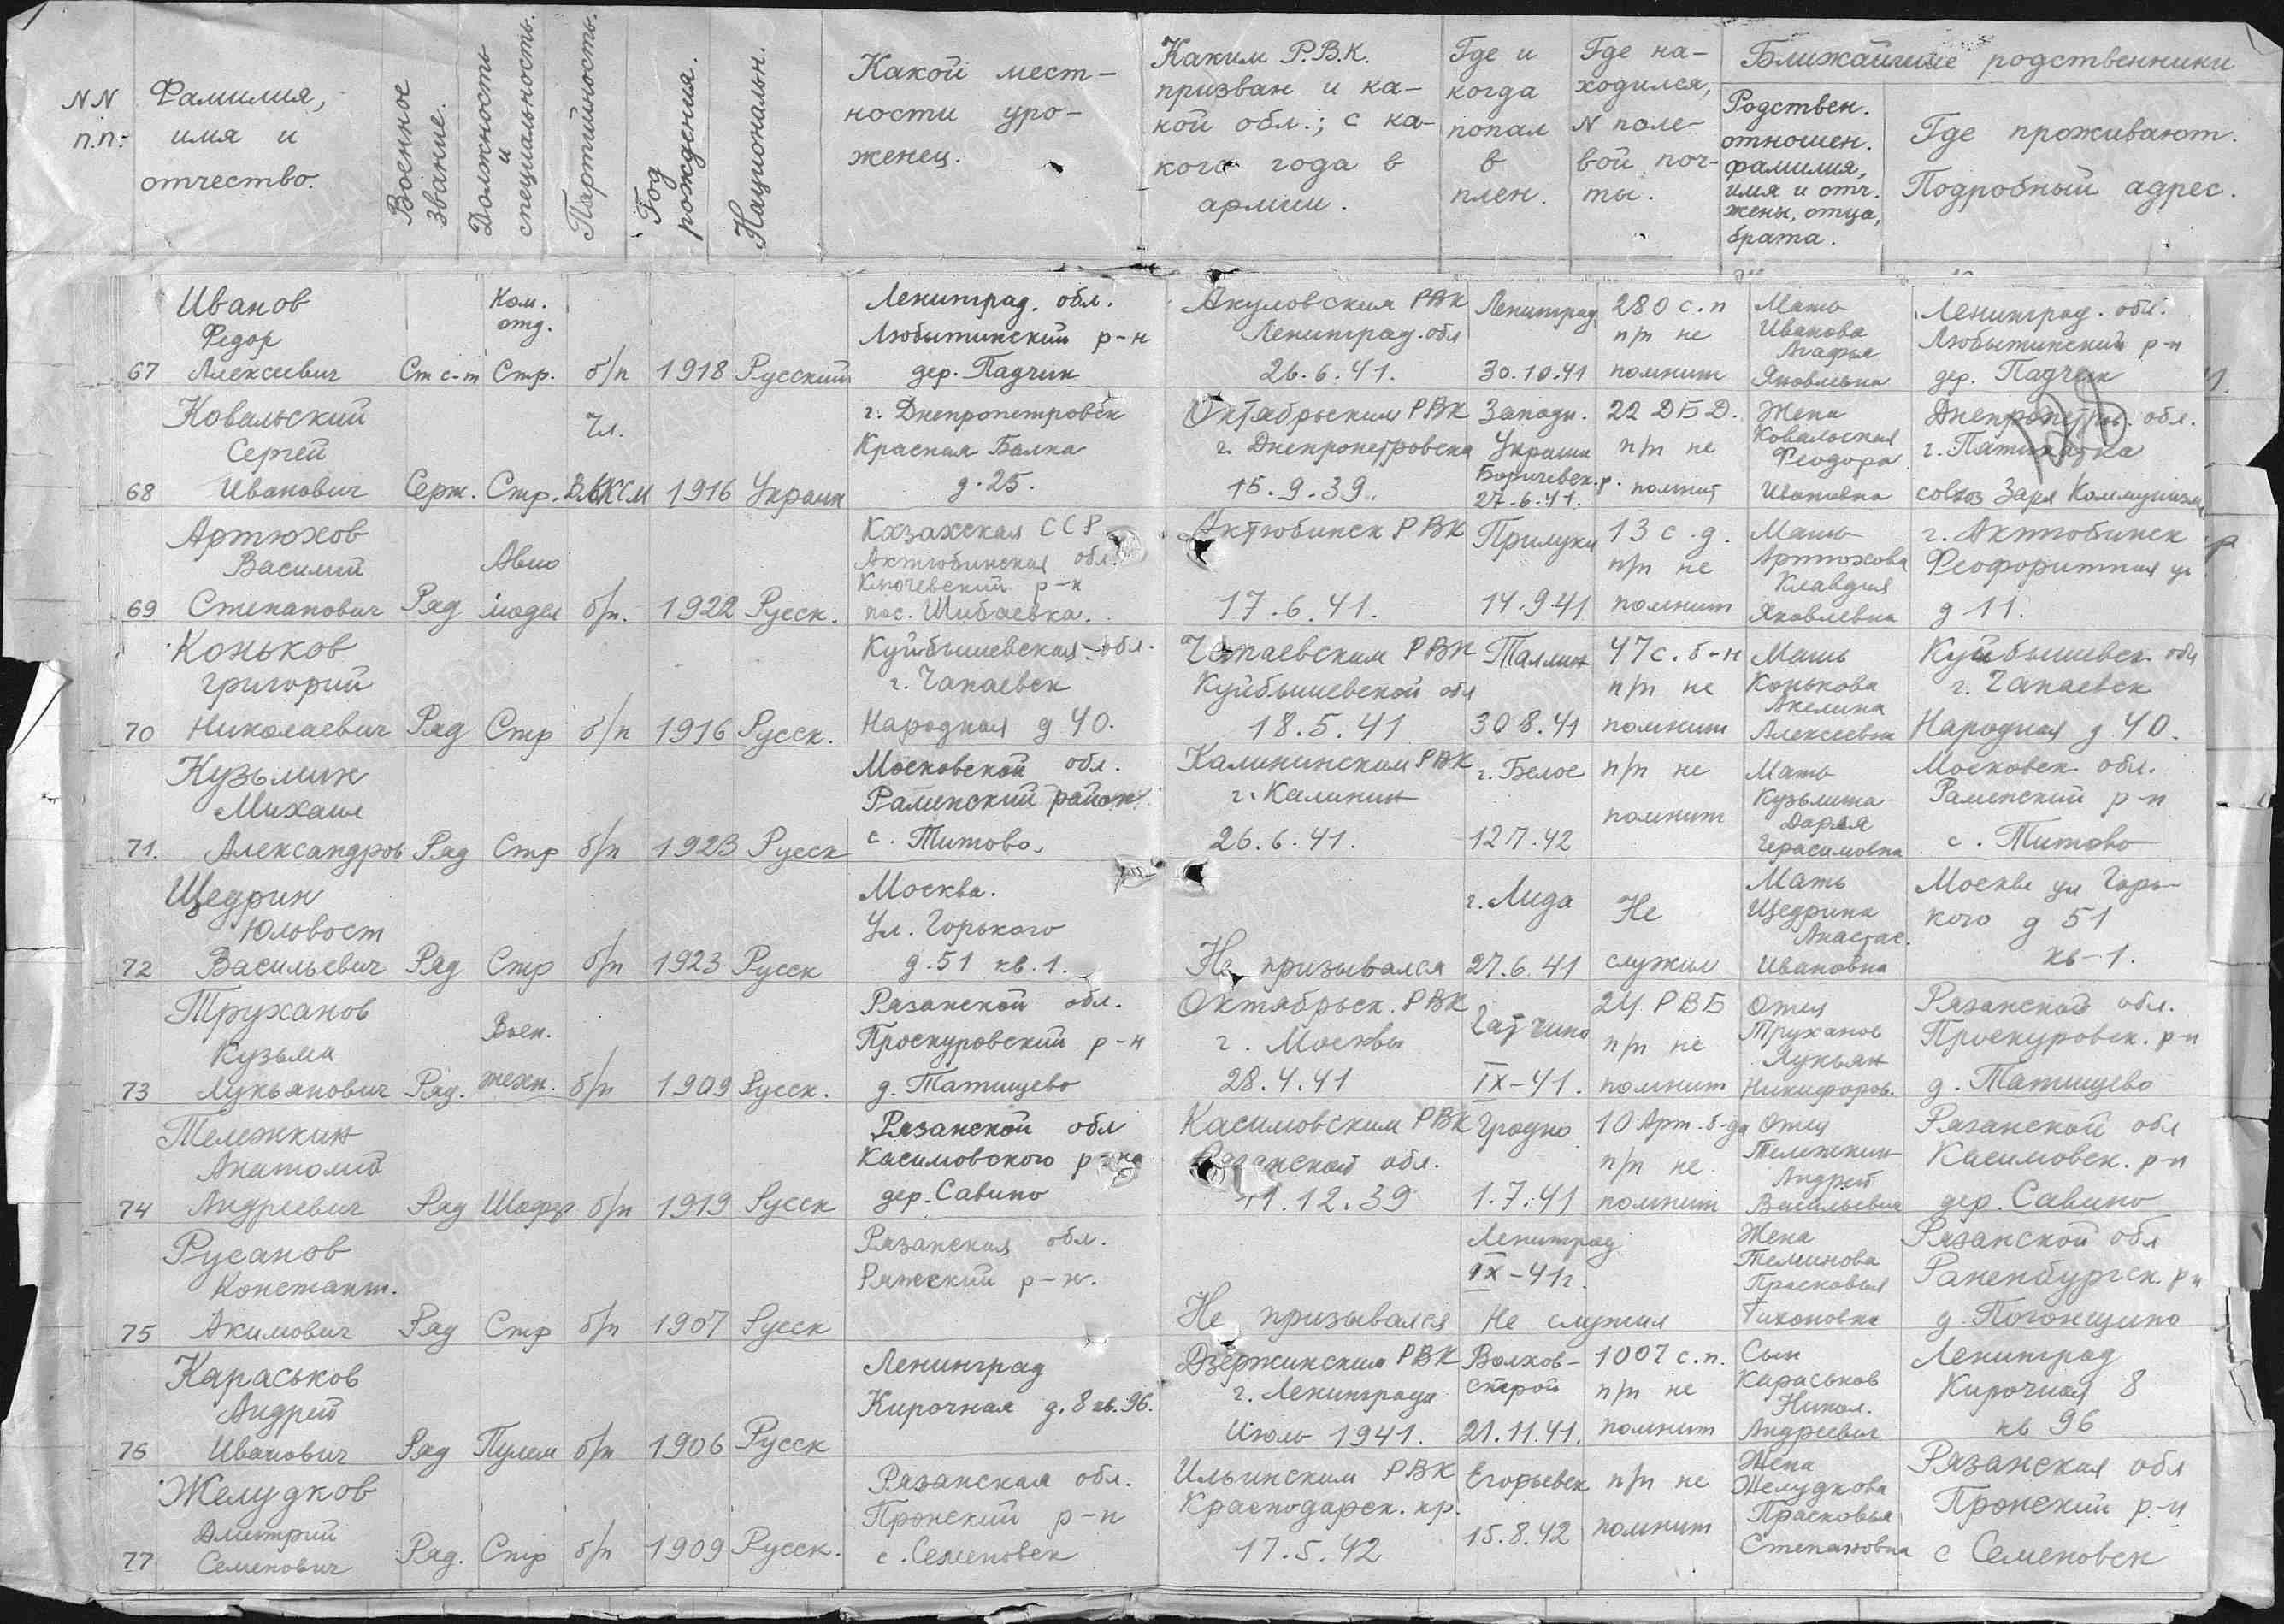 NN п.п.-
Фамилия, имя и отчество.
Военное звание.
Должность и специальность.
Партийность.
Год рождения.
Националън.
Какой местности уроженец.
Каким Р.В.К. призван и какой обл.; с какого года в армии.
Где и когда попал в плен.
Где находился, N полевой почты.
Ближайшие родственники
Родствен. отношен. фамилия, имя и отч. жены, отца, брата.
Где проживают. Подробный адрес.
67 Иванов Федор Алексеевич Ст с-т Ком. отд. Стр. б/п 1918 Русский Ленинград. обл. Любытинский р-н дер. Падчик Акуловским РВК Ленинград. обл 26.6.41. Ленинград 30.10.41 280 с.п п/п не помнит Мать Иванова Агафья Яковлевна Ленинград. обл. Любытинский р-н дер. Падчик
68 Ковальский Сергей Иванович Серж. Стр. Чл. ВЛКСМ 1916 Украин г. Днепропетровск Красная Балка д. 25. Октябрьским РВК г. Днепропетровска 15.9.39. Западн. Украина 27.6.41. 22 ДБД. п/п не помнит Жена Ковальская Феодора Ивановна Днепропетров. обл. г. Пятихатка совхоз Заря Коммунизма
69 Артюхов Василий Степанович Ряд Авио модел б/п. 1922 Русск. Казахская ССР Актюбинская обл. Ключевский р-н пос. Шибаевка. Актюбинск РВК 17.6.41. Прилуки 14.9.41 13 с.д. п/п не помнит Мать Артюхова Клавдия Яковлевна г. Актюбинск ул д 11.
70 Коньков Григорий Николаевич Ряд Стр б/п 1916 Русск. Куйбышевская обл. г. Чапаевск Народная д 40. Чапаевским РВК Куйбышевской обл 18.5.41 Таллин 30 8.41 47 с.б-н п/п не помнит Мать Конькова Акелина Алексеевна Куйбышевск. обл г. Чапаевск Народная д 40.
71. Кузьмин Михаил Александров Ряд Стр б/п 1923 Русск Московской обл. Раменский район с. Титово. Калининским РВК г. Калинин 26.6.41. г. Белое 12 7.42 п/п не помнит Мать Кузьмина Дарья Герасимовна Московск. обл. Раменский р-н с. Титово
72 Щедрин Юловост Васильевич Ряд Стр б/п 1923 Русск Москва. Ул. Горького д. 51 кв. 1. Не призывался г. Лида 27.6.41 Не служил Мать Щедрина Анастас. Ивановна Москва ул Горького д 51 кв-1.
73 Труханов Кузьма Лукьянович Ряд. Воен. техн. б/п 1909 Русск. Рязанской обл. Проскуровский р-н д. Татищево Октябрьск. РВК г. Москвы 28.4.41 Гатчино IX-41. 24 РВБ п/п не помнит Отец Труханов Лукьян Никифоров. Рязанской обл. Проскуровск. р-н д. Татищево
74 Тележкин Анатолий Андреевич Ряд Шофер б/п 1919 Русск Рязанской обл Касимовского р-на дер. Савино Касимовским РВК Рязанской обл. 11.12.39 Гродно 1.7.41 10 Арт. б-да п/п не помнит Отец Тележкин Андрей Васильевич Рязанской обл Касимовск. р-н дер. Савино
75 Русанов Константин. Акимович Ряд Стр б/п 1907 Русск Рязанская обл. Ряжский р-н. Не призывался Ленинград IX-41г. Не служил Жена Теминова Прасковья Тихоновна Рязанской обл Раненбургск. р-н д. Погонщино
76 Караськов Андрей Иванович Ряд Пулем б/п 1906 Русск Ленинград Кирочная д. 8 кв. 96. Дзержинским РВК г. Ленинграда Июль 1941. Волховстрой 21.11.41. 1007 с.п. п/п не помнит Сын Караськов Никол. Андреевич Ленинград Кирочная 8 кв 96
77 Желудков Дмитрий Семенович Ряд. Стр б/п 1909 Русск. Рязанская обл. Пронский р-н с. Семеновск Ильинским РВК Краснодарск. кр. 17.5.42 Егорьевск 15.8.42 п/п не помнит Жена Желудкова Прасковья Степановна Рязанская обл Пронский р-н с Семеновск